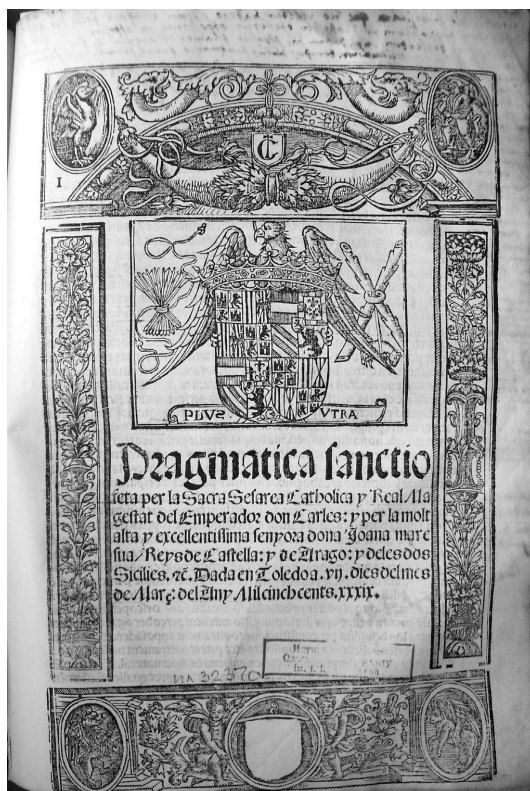 I
PLVS. VTRA
Pragmatica sanctio
feta per la Sacra Cesarea Catholica y Real Ma
gestat del Emperador don Carles: y per la molt
alta y excellentissima senyora dona Joana mare
sua / Reys de Castella: y de Arago: y deles dos
Sicilies, ⁊c̄. Dada en Toledo a. vij. dies del mes
de Març: del Any Mil cinch cents. xxxix.
32370